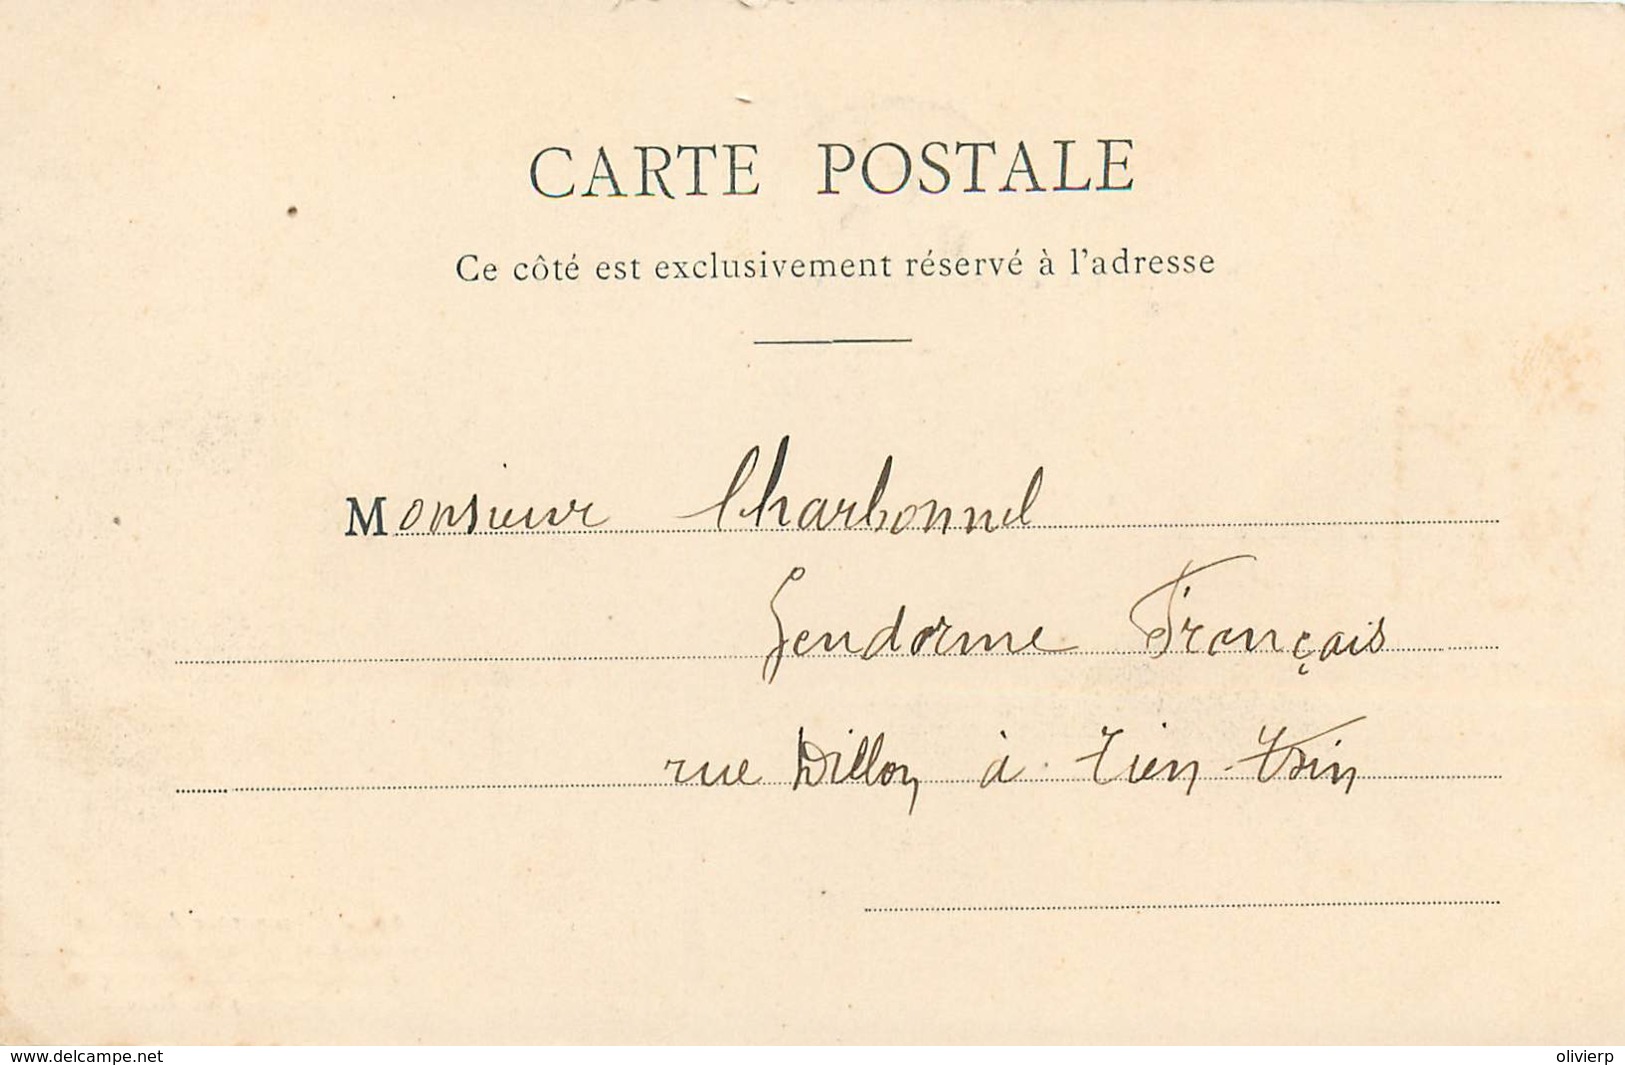 CARTE POSTALE
Ce côté est exclusivement réservé à l'adresse
Monsieur Charbonnel
Gendarme Français
rue Dillon à Tien-Tsin
www.delcampe.net
olivierp